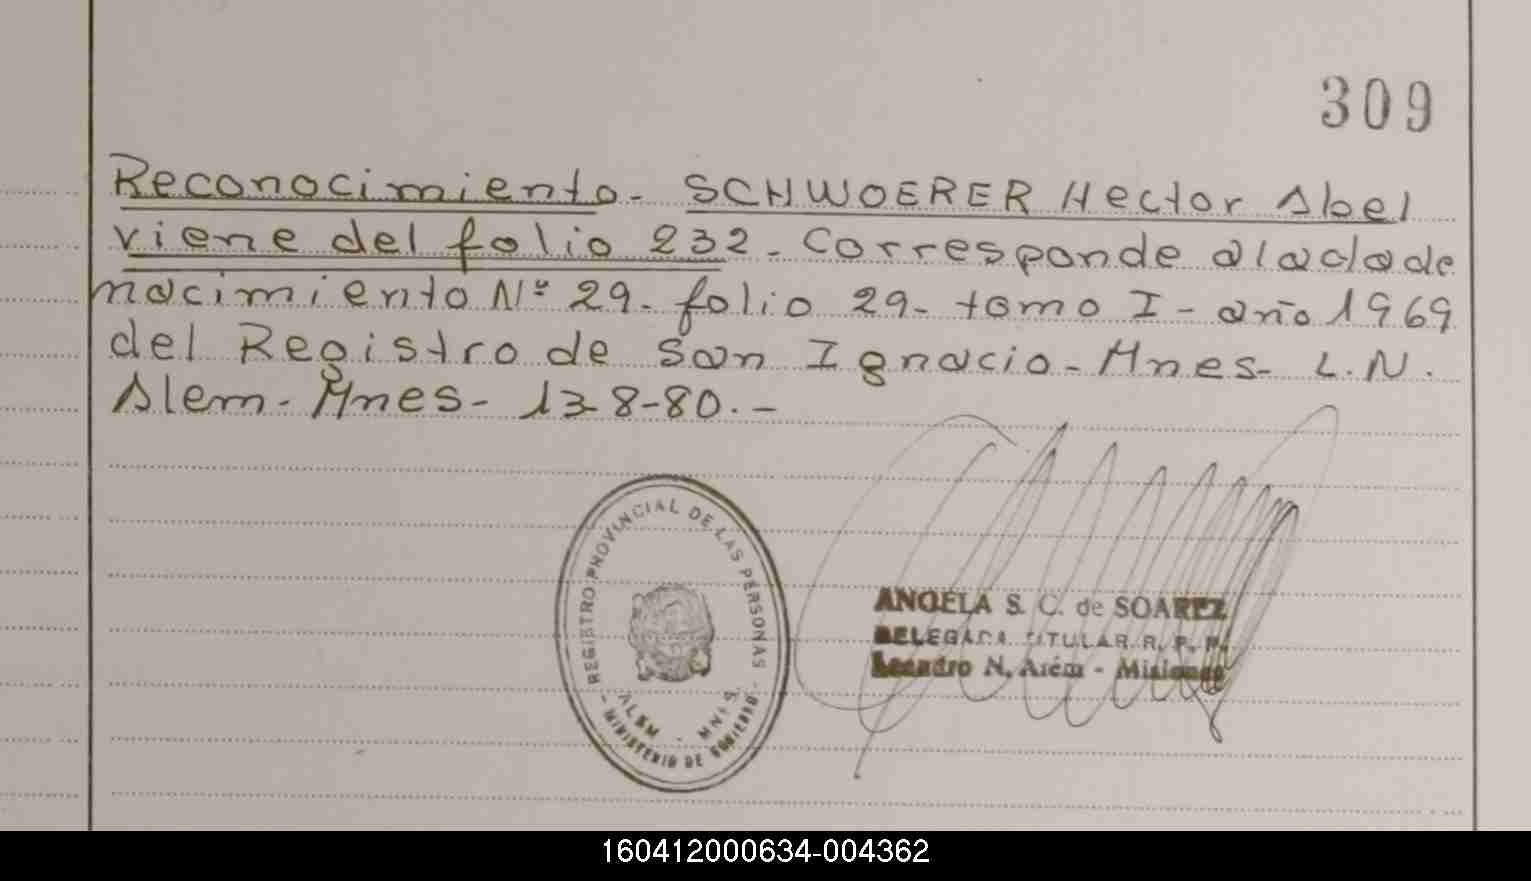 309
Reconocimiento - SCHWOERER Hector Abel
viene del folio 232 - Corresponde al acta de
nacimiento Nº 29 - folio 29 - tomo I - año 1969
del Registro de San Ignacio - Mnes - L.N.
Alem - Mnes - 13-8-80. -
REGISTRO PROVINCIAL DE LAS PERSONAS
ALEM - MNES
MINISTERIO DE GOBIERNO
ANGELA S. C. de SOAREZ
DELEGADA TITULAR R. P. P.
Leandro N. Alem - Misiones
160412000634-004362